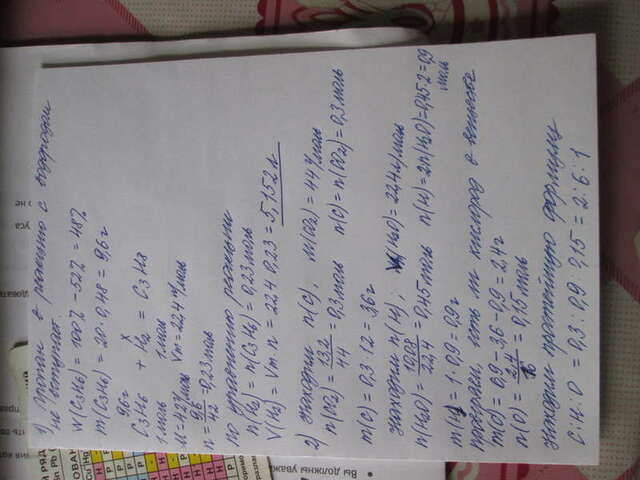 1) пропан в реакцию с водородом
не вступает.
W(C3H6) = 100% - 52% = 48%
m(C3H6) = 20 · 0,48 = 9,6 г
9,6 г x
C3H6 + H2 = C3H8
1 моль 1 моль
M=42 г/моль Vm=22,4 л/моль
n = 9,6/42 = 0,23 моль
по уравнению реакции
n(H2) = n(C3H6) = 0,23 моль
V(H2) = Vm · n = 22,4 · 0,23 = 5,152 л
2) Находим n(C); M(CO2) = 44 г/моль
n(CO2) = 13,2/44 = 0,3 моль n(C) = n(CO2) = 0,3 моль
m(C) = 0,3 · 12 = 3,6 г
находим n(H); (H2O) = 22,4 л/моль
n(H2O) = 10,08/22,4 = 0,45 моль n(H) = 2n(H2O) = 0,45·2 = 0,9 моль
m(H) = 1 · 0,9 = 0,9 г
есть ли кислород в
m(O) = 6,9 - 3,6 - 0,9 = 2,4 г
n(O) = 2,4/16 = 0,15 моль
находим простейшую формулу
C:H:O = 0,3 : 0,9 : 0,15 = 2:6:1
• Вы должны уважа